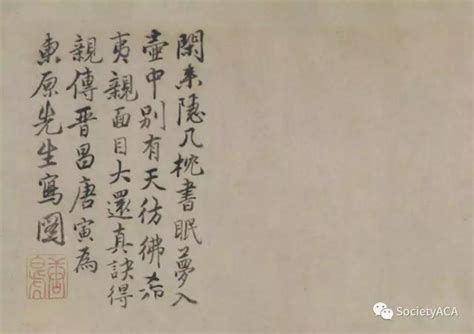 閑來隱几枕書眠夢入
壺中別有天彷彿希
夷親面目大還真訣得
親傳晉昌唐寅為
東原先生寫圖
SocietyACA